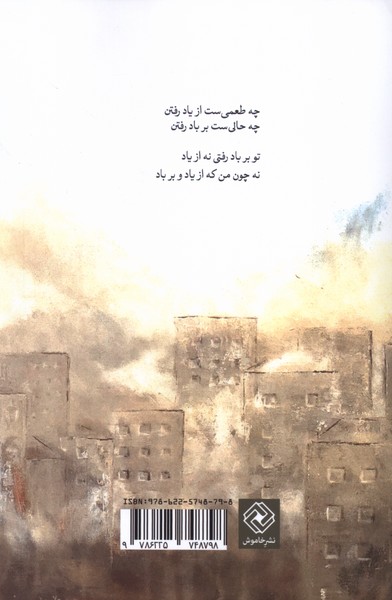 چه طعمی‌ست از یاد رفتن
چه حالی‌ست بر باد رفتن
تو بر باد رفتی نه از یاد
نه چون من که از یاد و بر باد
ISBN: 978-622-5748-79-8
9 786225 748798
نشر خاموش